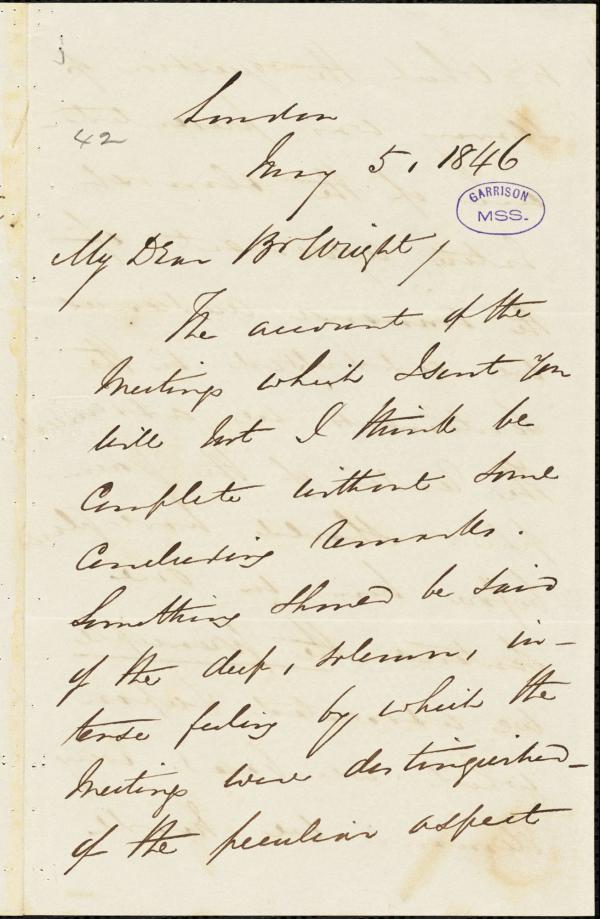 London
42
May 5, 1846
GARRISON
MSS.
My Dear Br Wright,
The account of the
Meetings which I sent you
will not I think be
complete without some
concluding remarks.
Something should be said
of the deep, solemn, in-
tense feeling by which the
Meetings were distinguished_
of the peculiar aspect